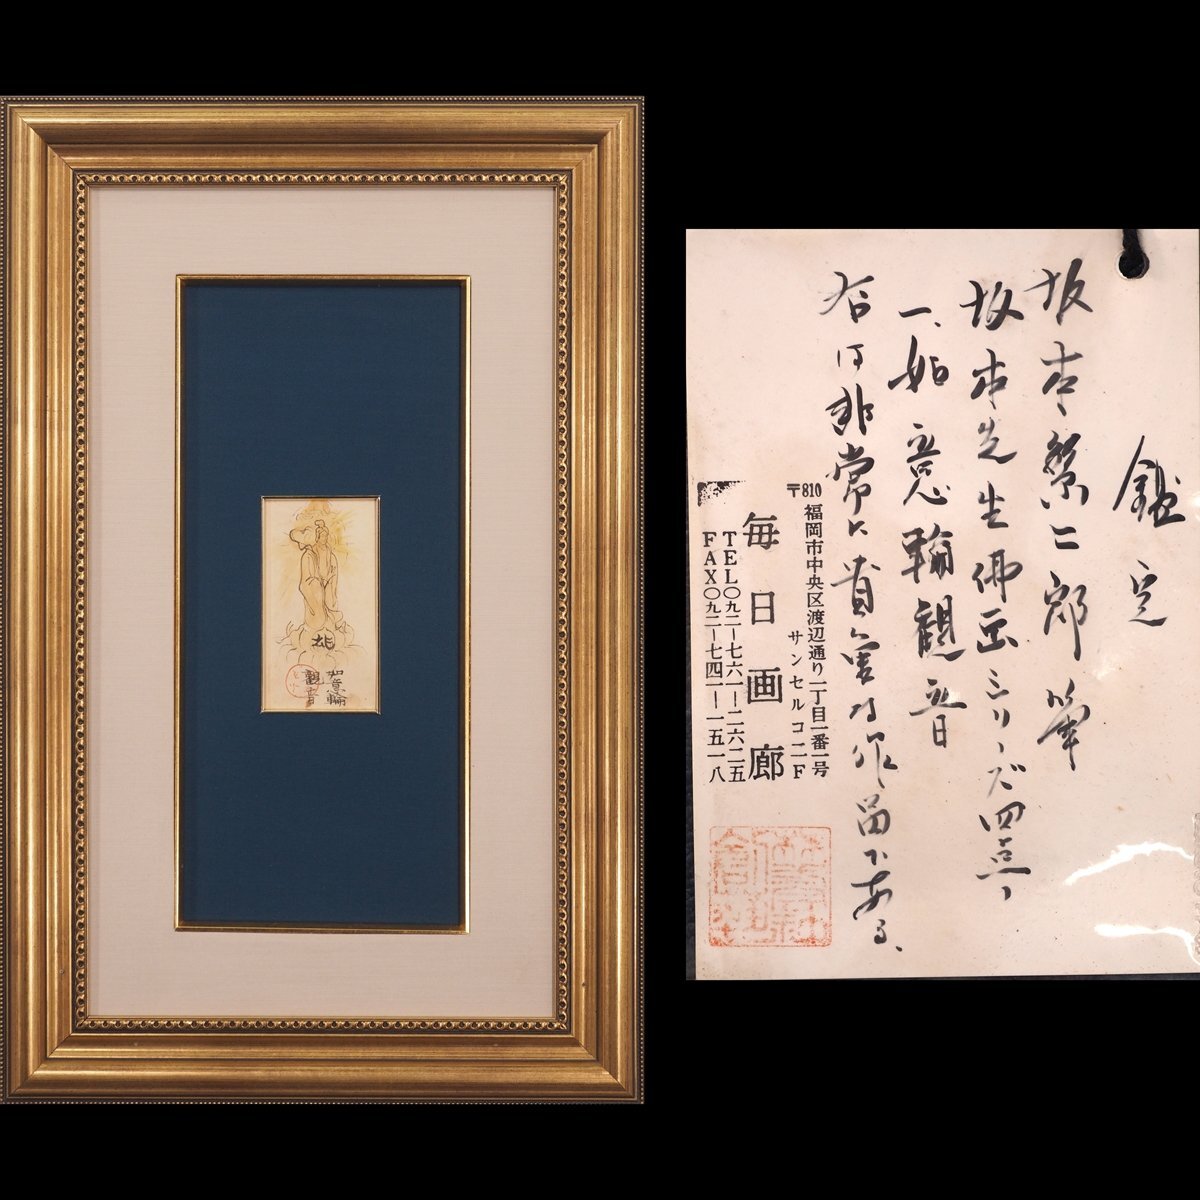 如意輪
観音
鑑定
坂本繁二郎筆
坂本先生佛画ミリーだ四点、
一、如意輪観音
右は非常に貴重な作品である、
〒810 福岡市中央区渡辺通り一丁目一番一号
サンセルコ二F
毎日画廊
TEL〇九二ー七六一ー二六二五
FAX〇九二ー七四一ー一五一八